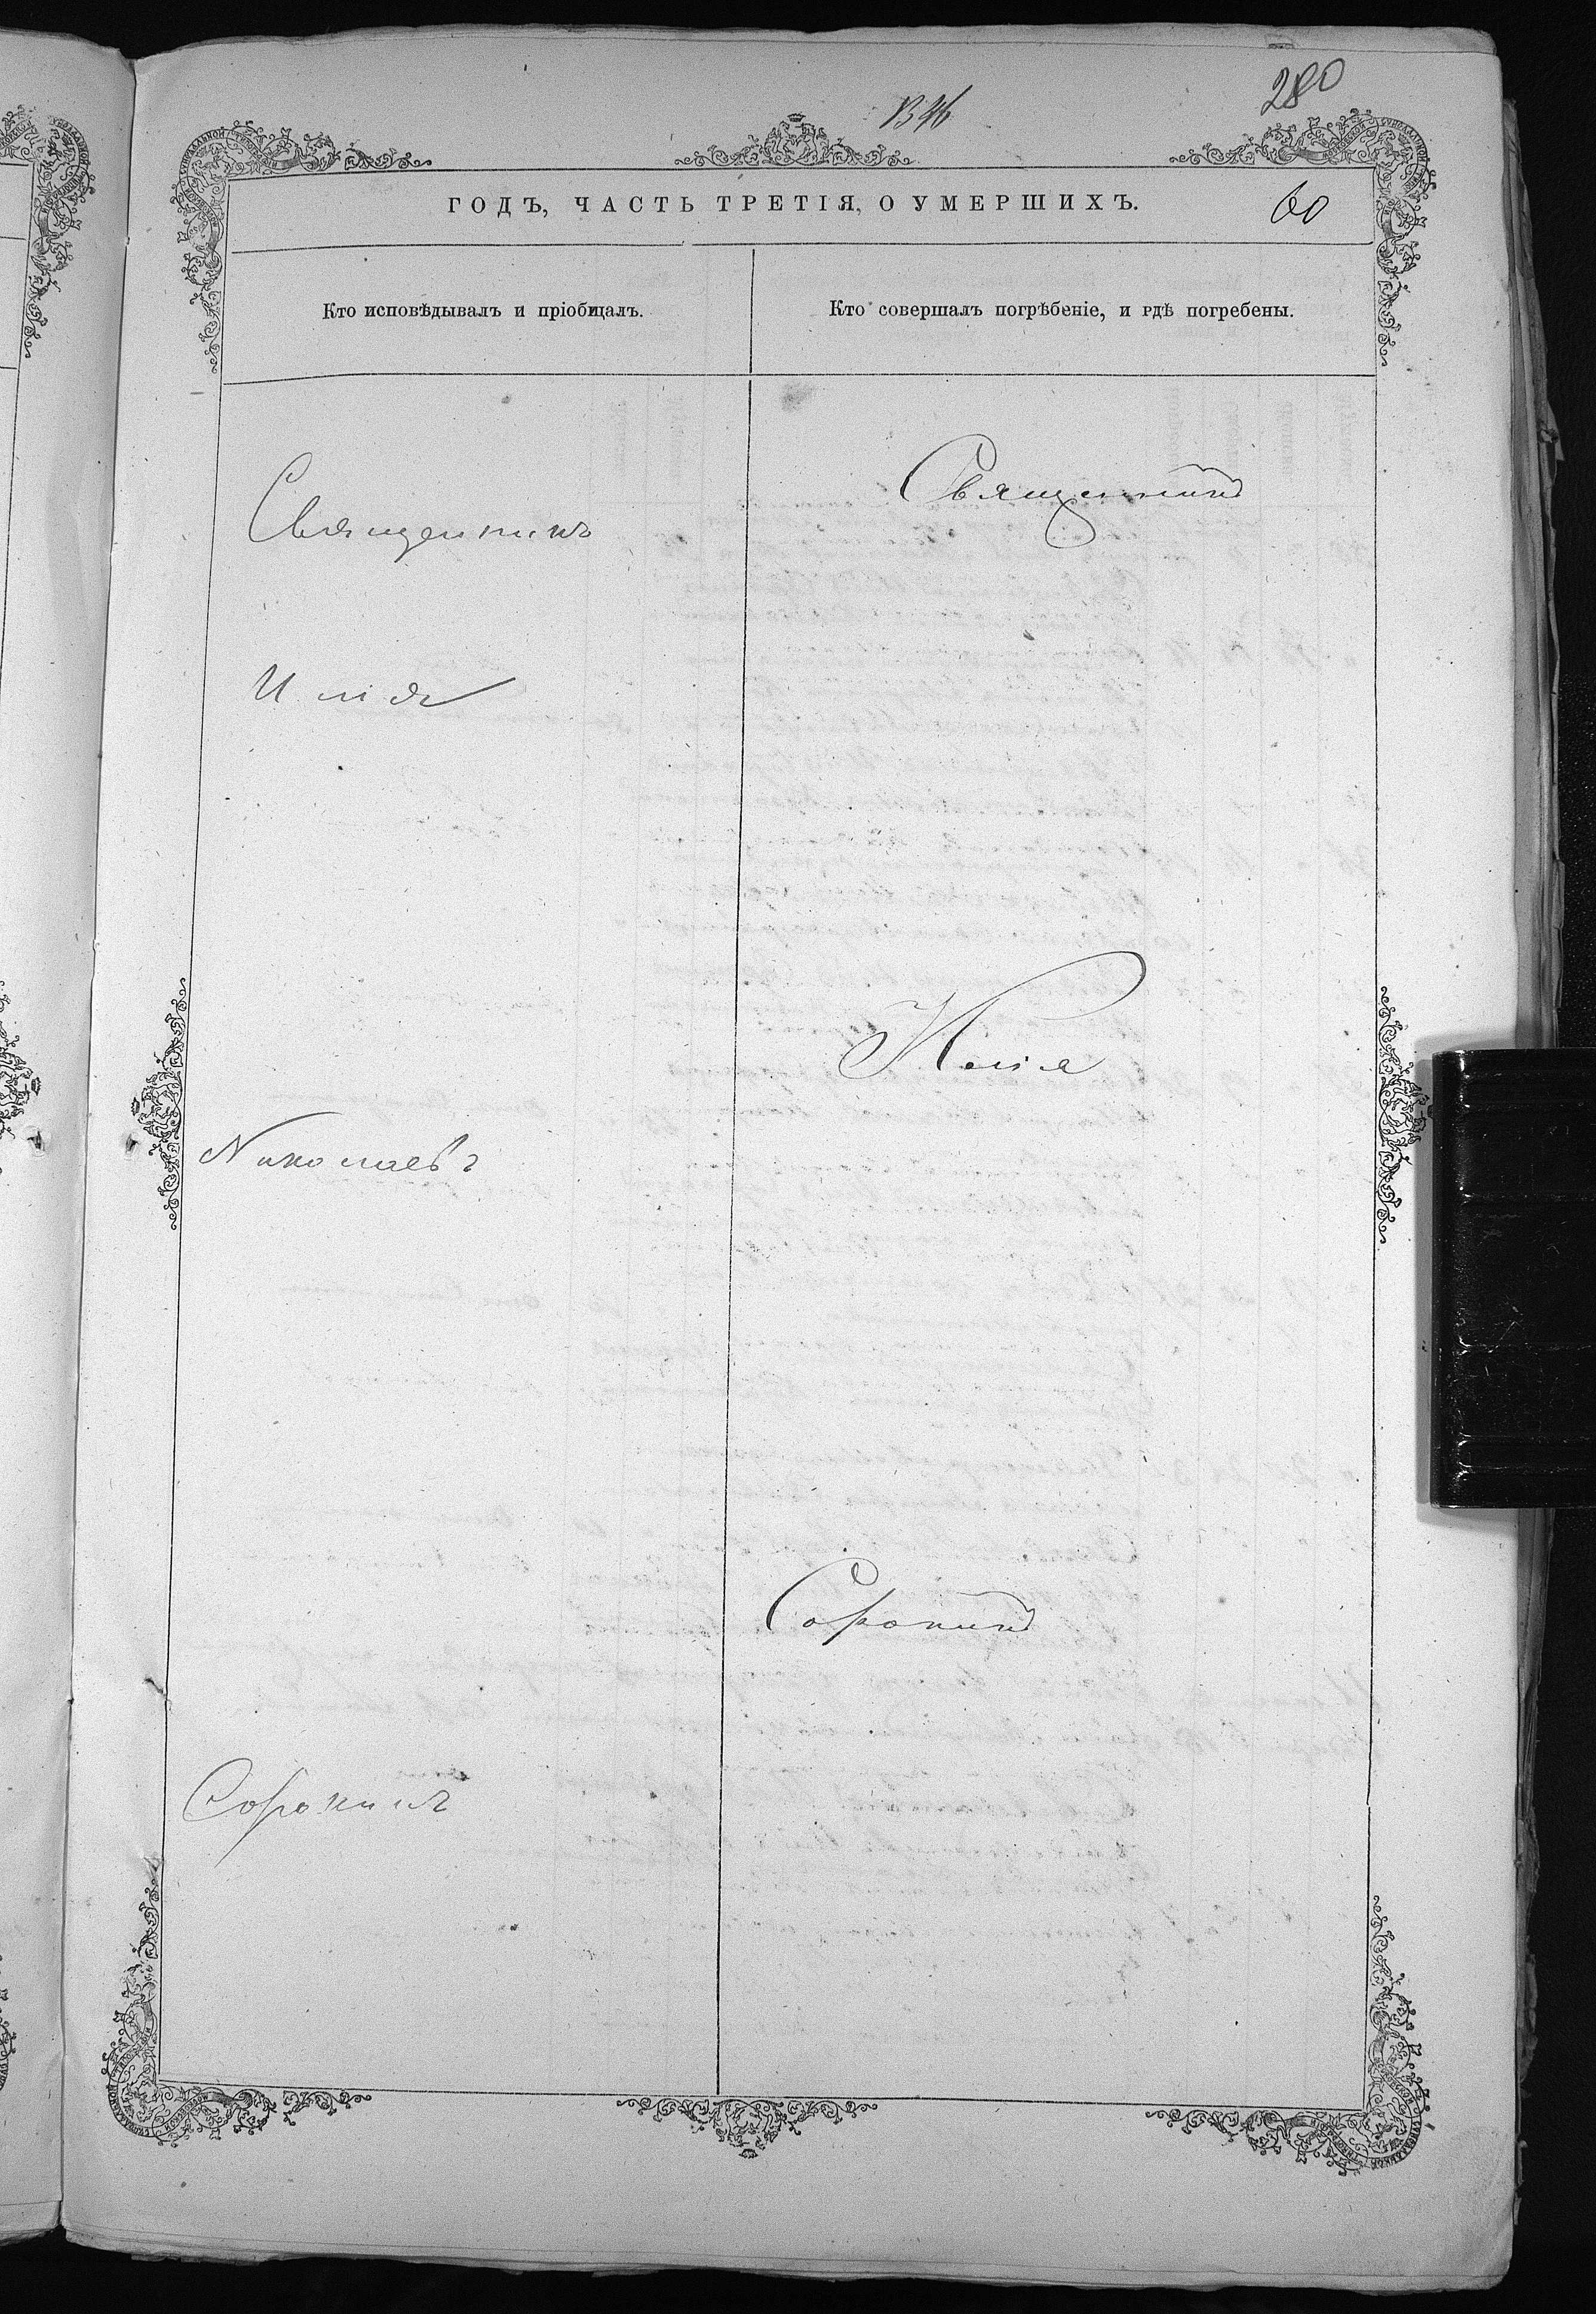 280
ГОДЪ, ЧАСТЬ ТРЕТІЯ, О УМЕРШИХЪ.
60
Кто исповѣдывалъ и пріобщалъ.
Кто совершалъ погрѣбеніе, и гдѣ погребены.
Священникъ
Священникъ
Илія
Илія
Николаевъ
Сорокинъ
Сорокинъ